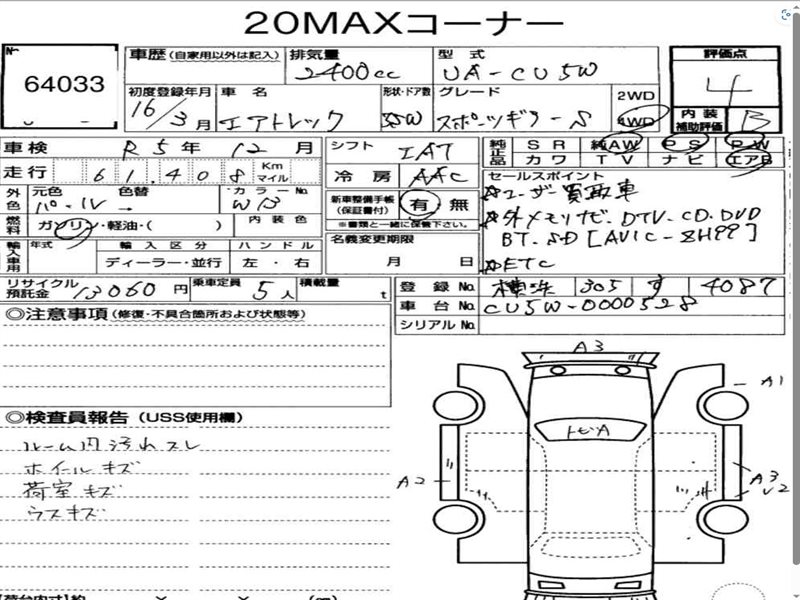 20MAXコーナー
No.
64033
車歴(自家用以外は記入)
排気量
2400cc
型式
UA-CU5W
評価点
4
初度登録年月
16/3月
車名
エアトレック
形状・ドア数
5W
グレード
スポーツギアーS
2WD
4WD
内装
補助評価
B
車検
R5年12月
シフト
IAT
純正品
SR
純AW
PS
PW
カワ
TV
ナビ
エアB
走行
61,408
Km
マイル
冷房
AAC
セールスポイント
ユーザー買取車
外メモリナビ.DTV.CD.DVD
BT.SD[AVIC-
ETC
外色
元色
パール
色替
カラーNo
W13
新車整備手帳
(保証書付)
有・無
※書類と一緒に保管下さい。
燃料
ガソリン・軽油・( )
内装色
名義変更期限
月 日
輸入車用
年式
輸入区分
ディーラー・並行
ハンドル
左・右
リサイクル
預託金
13060円
乗車定員
5人
積載量
t
登録No.
横浜 305 す 4087
車台No.
CU5W-0000528
シリアルNo.
◎注意事項(修復・不具合箇所および状態等)
◎検査員報告(USS使用欄)
ルーム内汚れスレ
ホイールキズ
荷室キズ
ラスキズ
A3
A1
トビA
A2
A3
U2